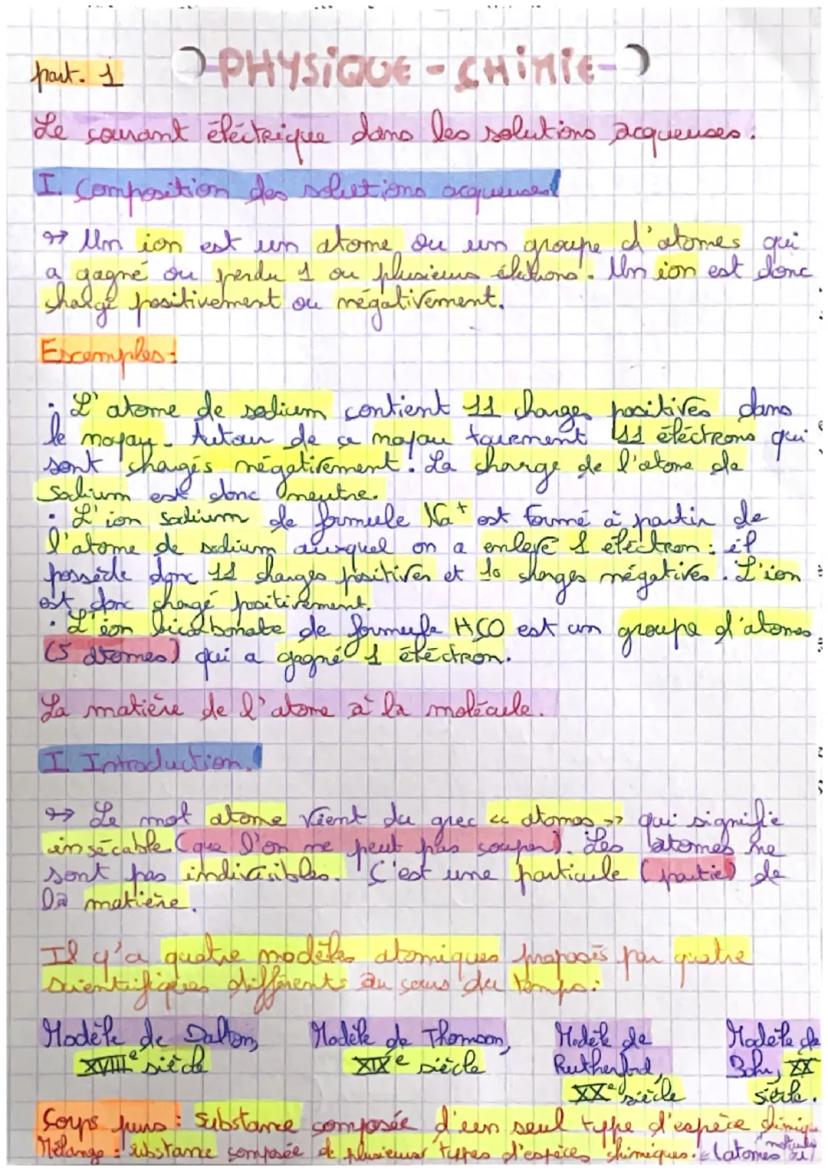 part. 1
PHYSIQUE - CHIMIE
Le courant éléctrique dans les solutions acqueuses.
I. Composition des solutions acqueuses
↦ Un ion est un atome ou un groupe d'atomes qui
a gagné ou perdu 1 ou plusieurs éléctrons. Un ion est donc
chargé positivement ou négativement.
Exemples:
• L'atome de sodium contient 11 charges positives dans
le noyau. Autour de ce noyau tournent 11 éléctrons qui
sont chargés négativement. La charge de l'atome de
sodium est donc neutre.
• L'ion sodium de formule Na⁺ est formé à partir de
l'atome de sodium auxquel on a enlevé 1 éléctron : il
possède donc 11 charges positives et 10 charges négatives. L'ion
est donc chargé positivement.
• L'ion bicarbonate de formule HCO est un groupe d'atomes
(5 atomes) qui a gagné 1 éléctron.
La matière de l'atome à la molécule.
I. Introduction.
↦ Le mot atome vient du grec « atomos » qui signifie
insécable (que l'on ne peut pas couper). Les atomes ne
sont pas indivisibles. C'est une particule (partie) de
la matière.
Il y'a quatre modèles atomiques proposés par quatre
scientifiques différents au cours du temps :
Modèle de Dalton, Modèle de Thomson, Modèle de Modèle de
XVIIIᵉ siècle XIXᵉ siècle Rutherford, Bohr, XX
XXᵉ siècle siècle.
Corps purs : substance composée d'un seul type d'espèce chimique
Mélange : substance composée de plusieurs types d'espèces chimiques. (atomes ou
molécules